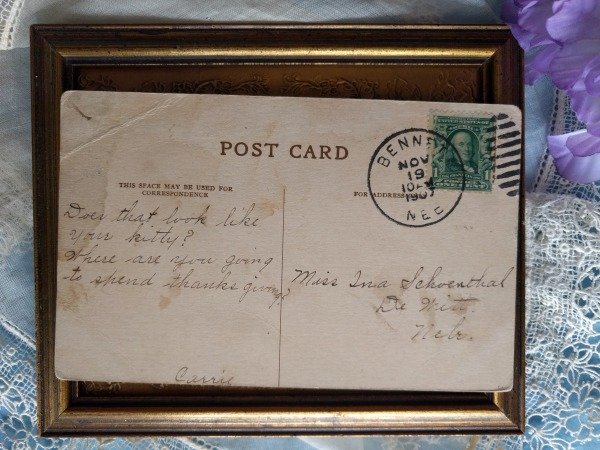 POST CARD
THIS SPACE MAY BE USED FOR
CORRESPONDENCE
FOR ADDRESS
BENNET
NOV
19
10 A
1907
NEB
1
Does that look like
your kitty?
Where are you going
to spend thanksgiving?
Carrie
Miss Ina Schoenthal
De Witt.
Nebr.